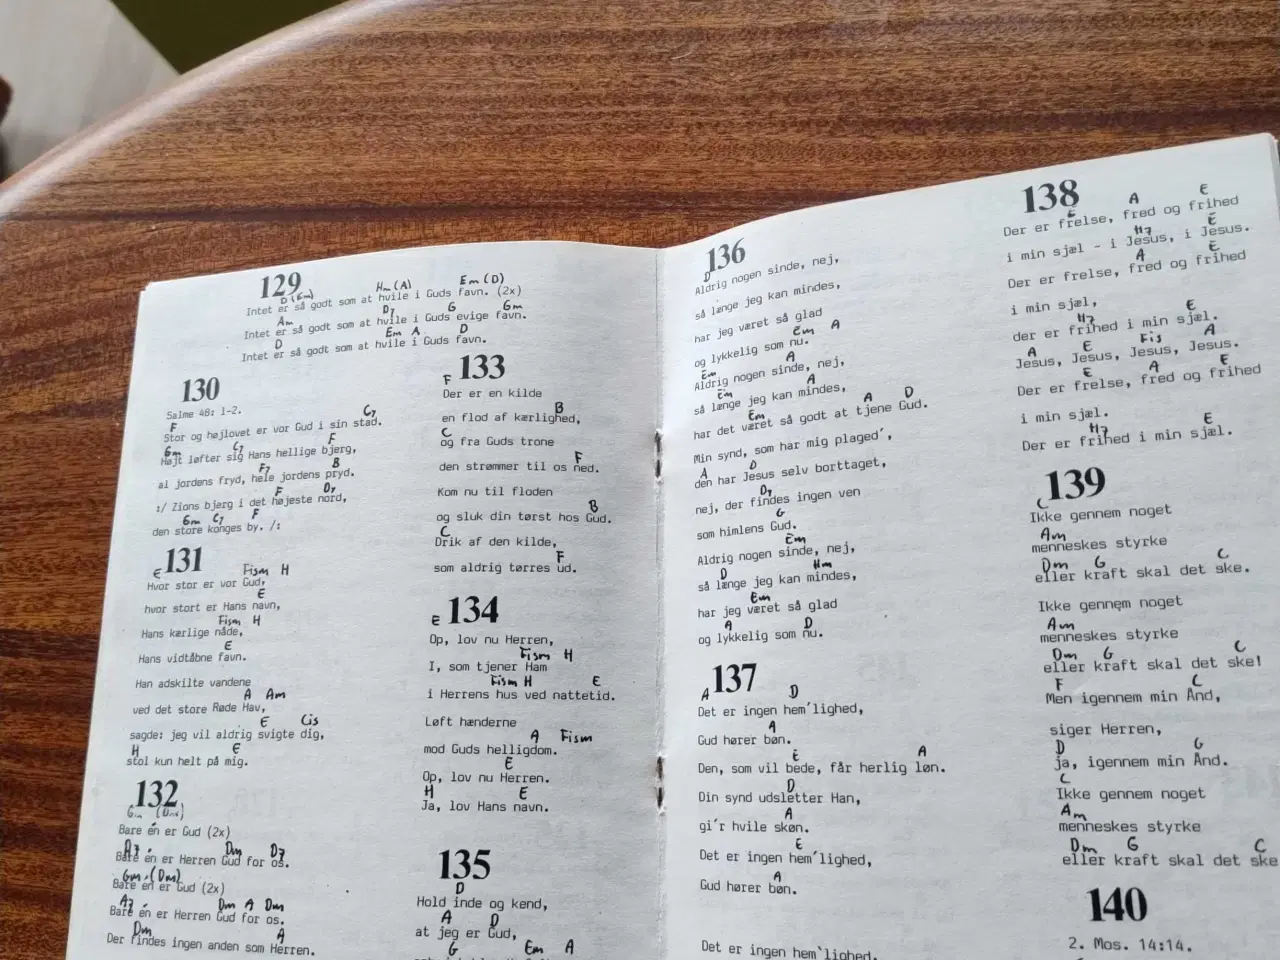 129
D(Em) Hm(A) Em(D)
Intet er så godt som at hvile i Guds favn. (2x)
Am D7 G Gm
Intet er så godt som at hvile i Guds evige favn.
D Em A D
Intet er så godt som at hvile i Guds favn.
130
Salme 48: 1-2.
F C7
Stor og højlovet er vor Gud i sin stad.
Gm C7 F
Højt løfter sig Hans hellige bjerg,
F7 B
al jordens fryd, hele jordens pryd.
F D7
:/ Zions bjerg i det højeste nord,
Gm C7 F
den store konges by. /:
131
E Fism H
Hvor stor er vor Gud,
E
hvor stort er Hans navn,
Fism H
Hans kærlige nåde,
E
Hans vidtåbne favn.
Han adskilte vandene
A Am
ved det store Røde Hav,
E Cis
sagde: jeg vil aldrig svigte dig,
H E
stol kun helt på mig.
132
Gm (Dm)
Bare én er Gud (2x)
A7 Dm D7
Bare én er Herren Gud for os.
Gm (Dm)
Bare én er Gud (2x)
A7 Dm A Dm
Bare én er Herren Gud for os.
Dm A
Der findes ingen anden som Herren.
133
F
Der er en kilde
B
en flod af kærlighed,
C
og fra Guds trone
F
den strømmer til os ned.
Kom nu til floden
B
og sluk din tørst hos Gud.
C
Drik af den kilde,
F
som aldrig tørres ud.
134
E
Op, lov nu Herren,
Fism H
I, som tjener Ham
Fism H E
i Herrens hus ved nattetid.
Løft hænderne
A Fism
mod Guds helligdom.
E
Op, lov nu Herren.
H E
Ja, lov Hans navn.
135
D
Hold inde og kend,
A D
at jeg er Gud,
G Em A
136
D
Aldrig nogen sinde, nej,
så længe jeg kan mindes,
har jeg været så glad
Em A
og lykkelig som nu.
Em A
Aldrig nogen sinde, nej,
Em A
så længe jeg kan mindes,
Em A D
har det været så godt at tjene Gud.
Min synd, som har mig plaged',
A D
den har Jesus selv borttaget,
D7
nej, der findes ingen ven
G
som himlens Gud.
Em
Aldrig nogen sinde, nej,
D Hm
så længe jeg kan mindes,
Em
har jeg været så glad
A D
og lykkelig som nu.
137
A D
Det er ingen hem'lighed,
A
Gud hører bøn.
E A
Den, som vil bede, får herlig løn.
D
Din synd udsletter Han,
A
gi'r hvile skøn.
E
Det er ingen hem'lighed,
A
Gud hører bøn.
Det er ingen hem'lighed.
138
E A E
Der er frelse, fred og frihed
H7 E
i min sjæl - i Jesus, i Jesus.
A E
Der er frelse, fred og frihed
i min sjæl,
H7 E
der er frihed i min sjæl.
A E Fis A
Jesus, Jesus, Jesus, Jesus.
E A E
Der er frelse, fred og frihed
i min sjæl.
H7 E
Der er frihed i min sjæl.
139
C
Ikke gennem noget
Am
menneskes styrke
Dm G C
eller kraft skal det ske.
Ikke gennem noget
Am
menneskes styrke
Dm G C
eller kraft skal det ske!
F C
Men igennem min Ånd,
siger Herren,
D G
ja, igennem min Ånd.
C
Ikke gennem noget
Am
menneskes styrke
Dm G C
eller kraft skal det ske
140
2. Mos. 14:14.